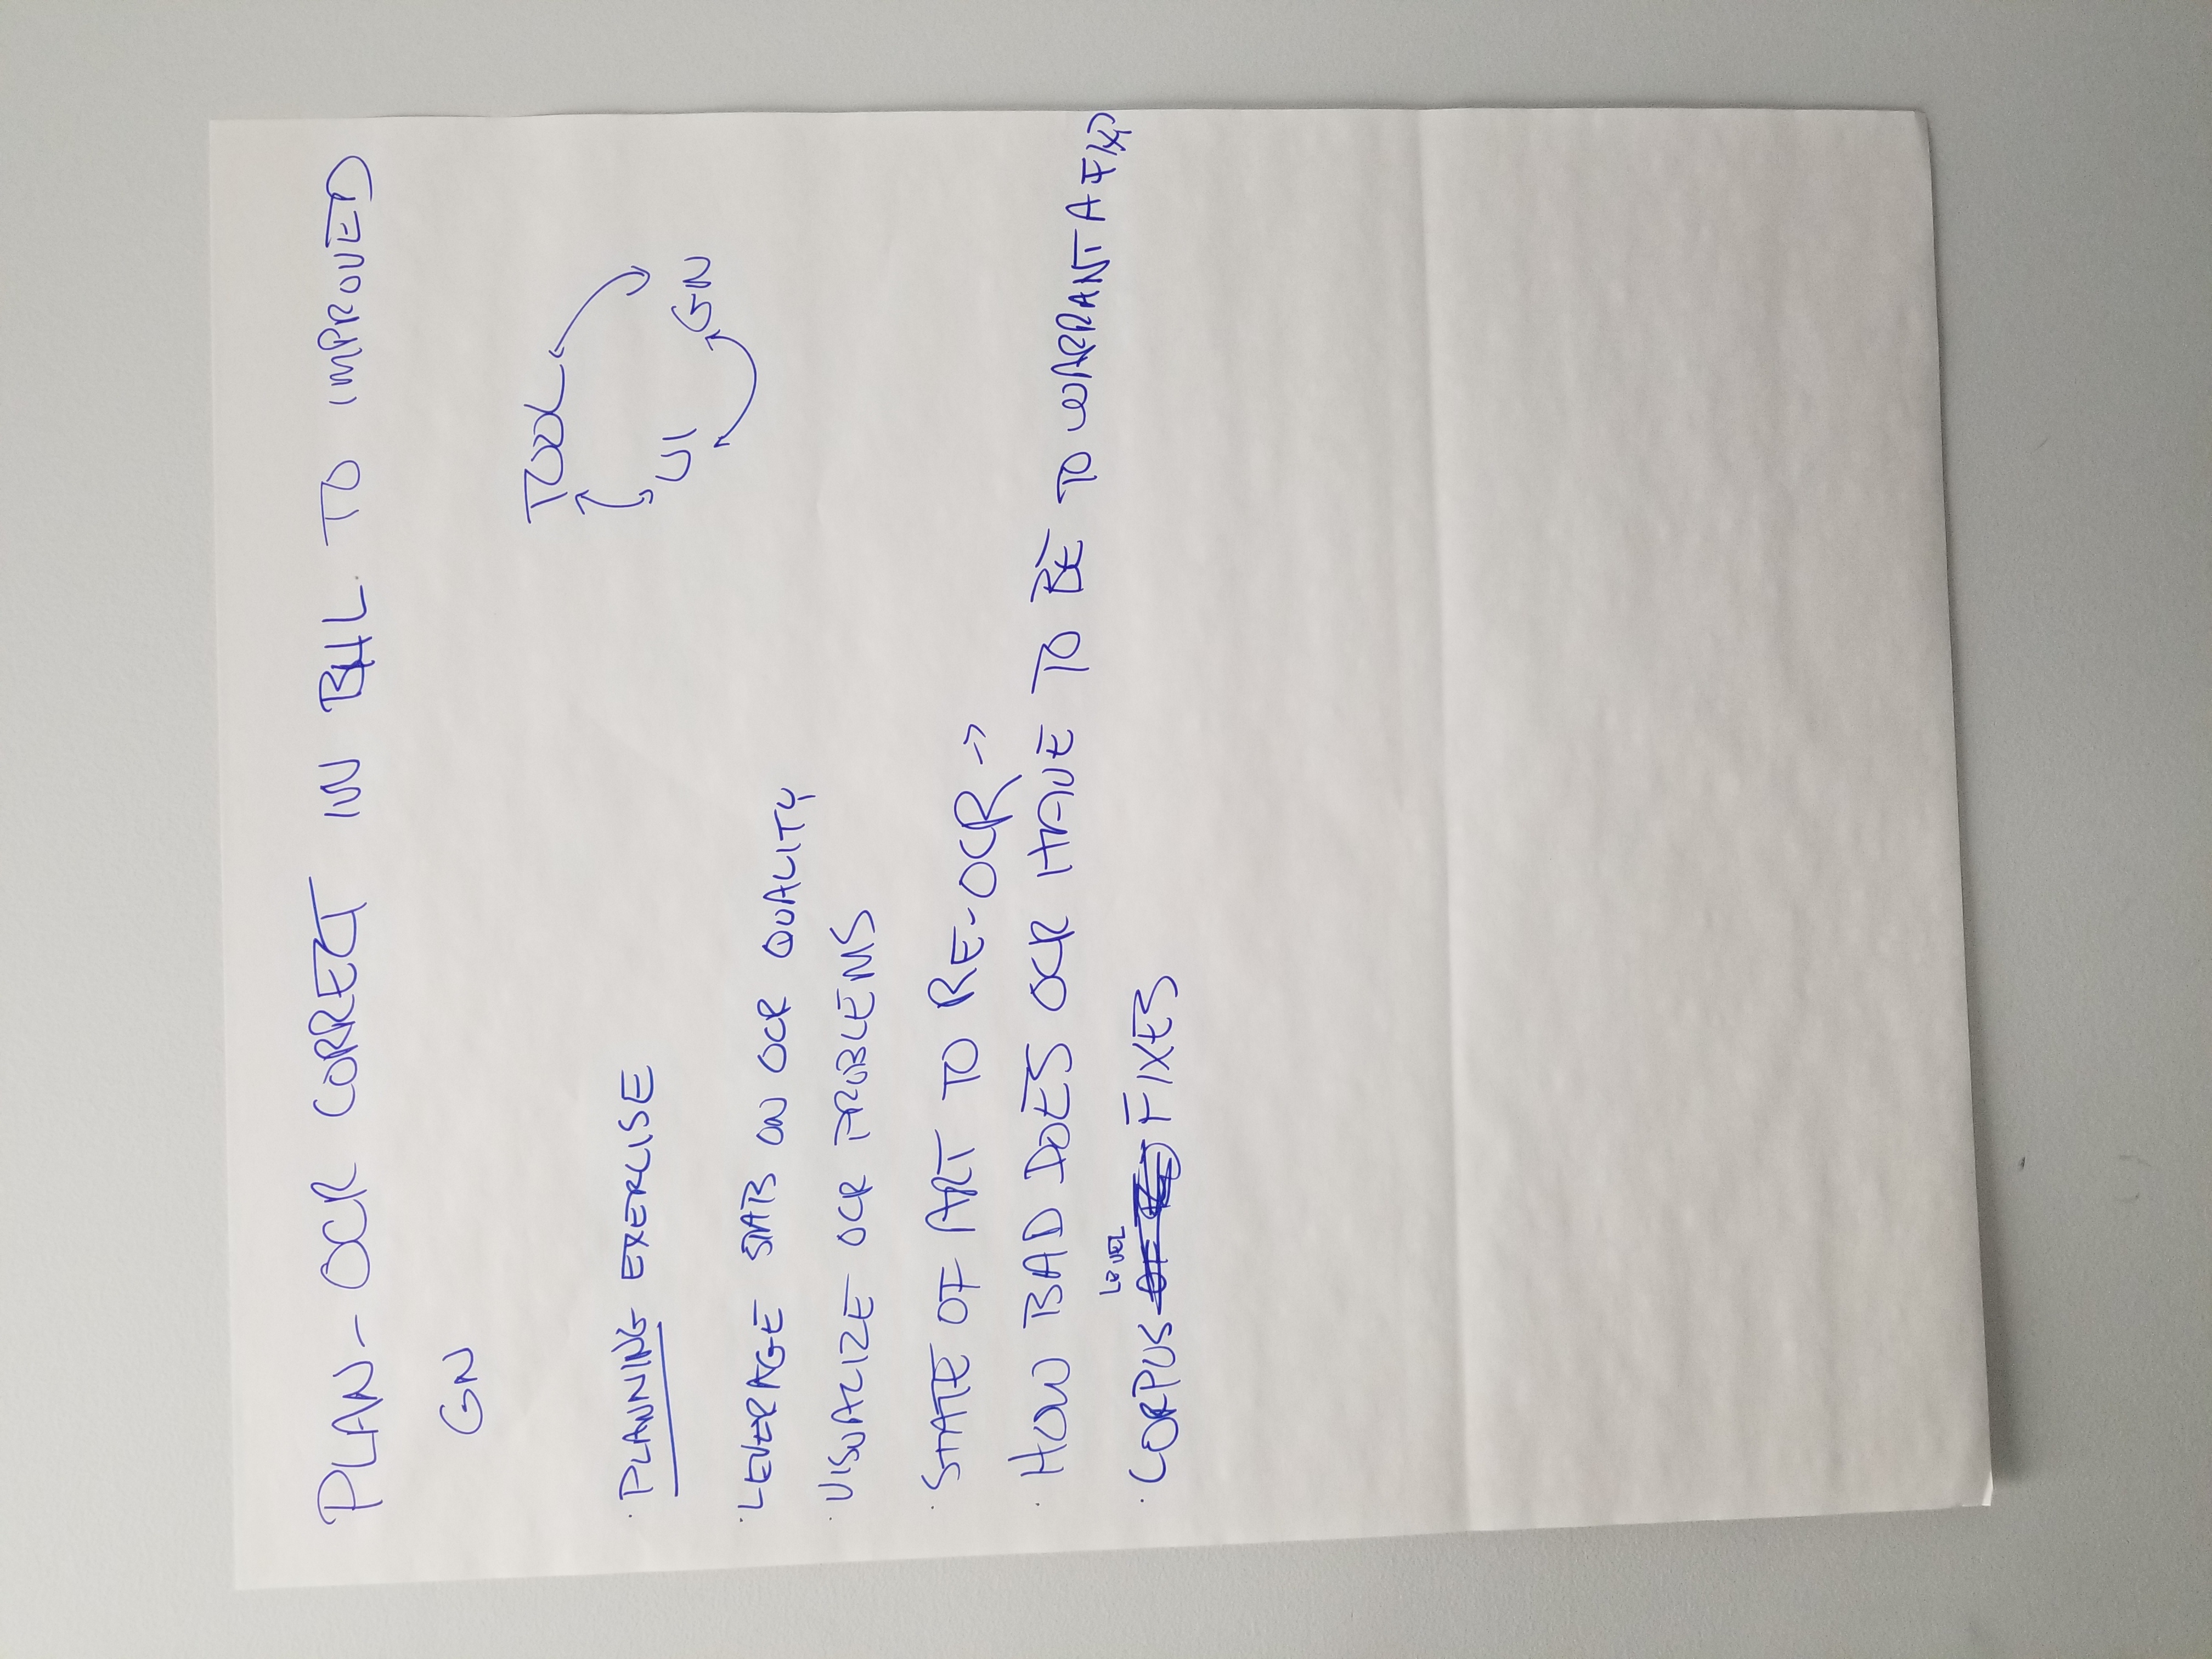 PLAN - OCR CORRECT IN BHL TO IMPROVED
GN
TOOL
UI
GN
· PLANNING EXERCISE
· LEVERAGE STATS ON OCR QUALITY
· VISUALIZE OCR PROBLEMS
· STATE OF ART TO RE-OCR →
· HOW BAD DOES OCR HAVE TO BE TO WARRANT A FIX?
· CORPUS LEVEL FIXES